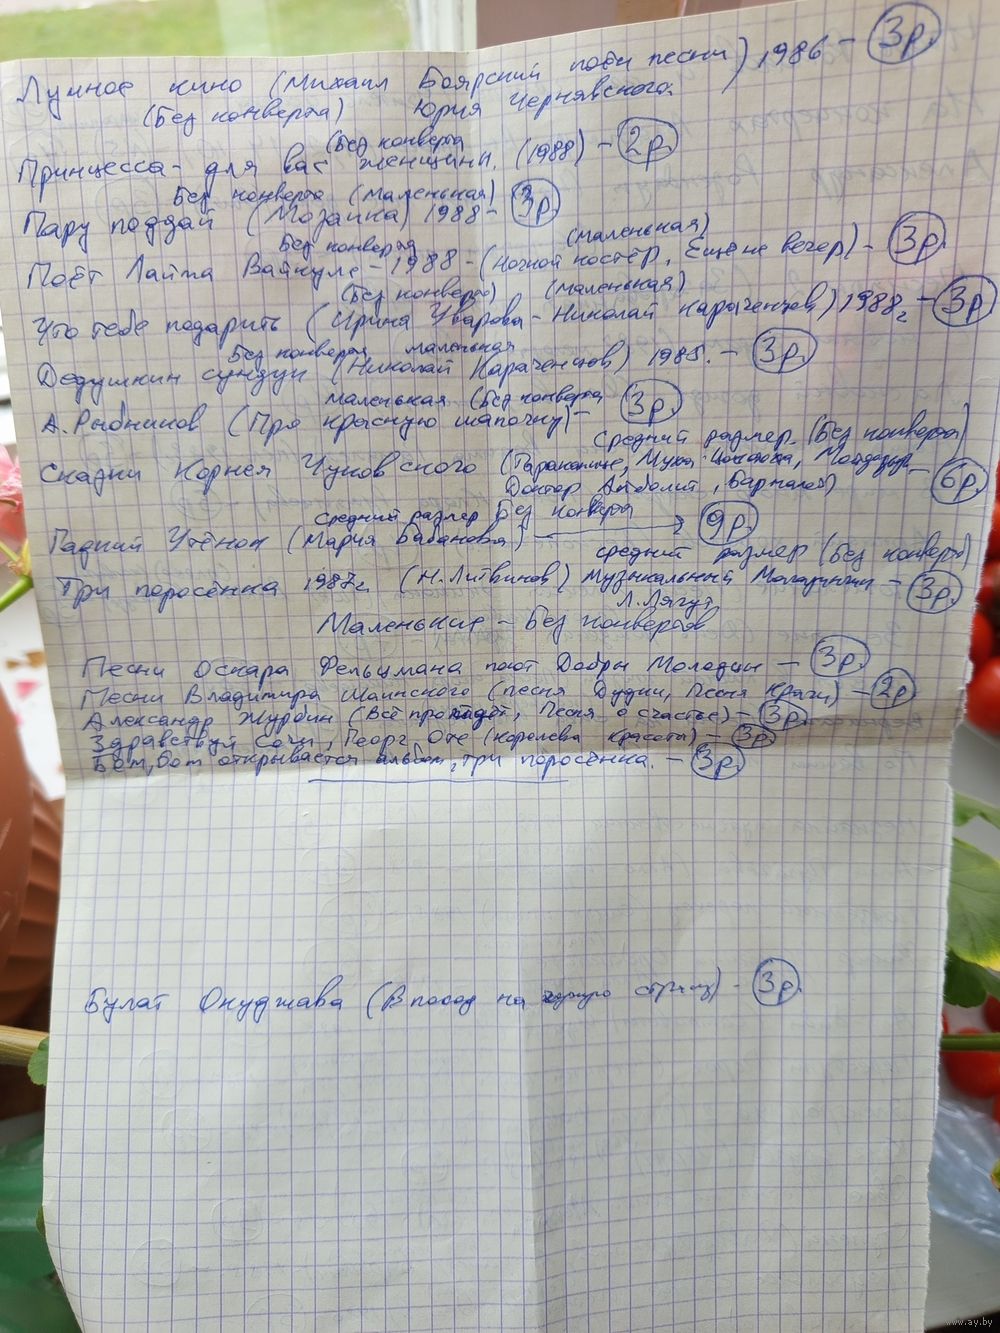 Лунное кино (Михаил Боярский поёт песни) 1986 - 3р.
(Без конверта) Юрия Чернявского.
(Без конверта)
Принцесса - для вас женщины. (1988) - 2р.
Без конверта (маленькая)
Пару поддай (Мозаика) 1988 - 3р.
Без конверта (маленькая)
Поёт Лайма Вайкуле - 1988 - (Ночной костёр, Ещё не вечер) - 3р.
(Без конверта) (маленькая)
Что тебе подарить (Ирина Уварова - Николай Караченцов) 1988г - 3р.
Без конверта маленькая
Дедушкин сундук (Николай Караченцов) 1985. - 3р.
маленькая (Без конверта
А. Рыбников (Про красную шапочку) - 3р.
Средний размер. (Без конверта)
Сказки Корнея Чуковского (Тараканище, Муха Цокотуха, Мойдодыр - 6р.
Доктор Айболит, Бармалей)
средний размер Без конверта
Гадкий Утёнок (Мария Бабанова) 9р.
средний размер (Без конверта)
Три поросёнка 1987г. (Н. Литвинов) Музыкальный Магазинчик - 3р.
Л. Лягут
Маленькие - Без конвертов
Песни Оскара Фельцмана поют Добры Молодцы - 3р.
Песни Владимира Шаинского (песня Дудки, Песня Крачи) - 2р
Александр Журбин (Всё пройдёт, Песня о счастье) - 3р.
Здравствуй Сочи, Георг Отс (Королева красоты) - 3р
Бом, бом открывается альбом, три поросёнка. - 3р.
Булат Окуджава (В поход на чужую страну) - 3р.
www.ay.by